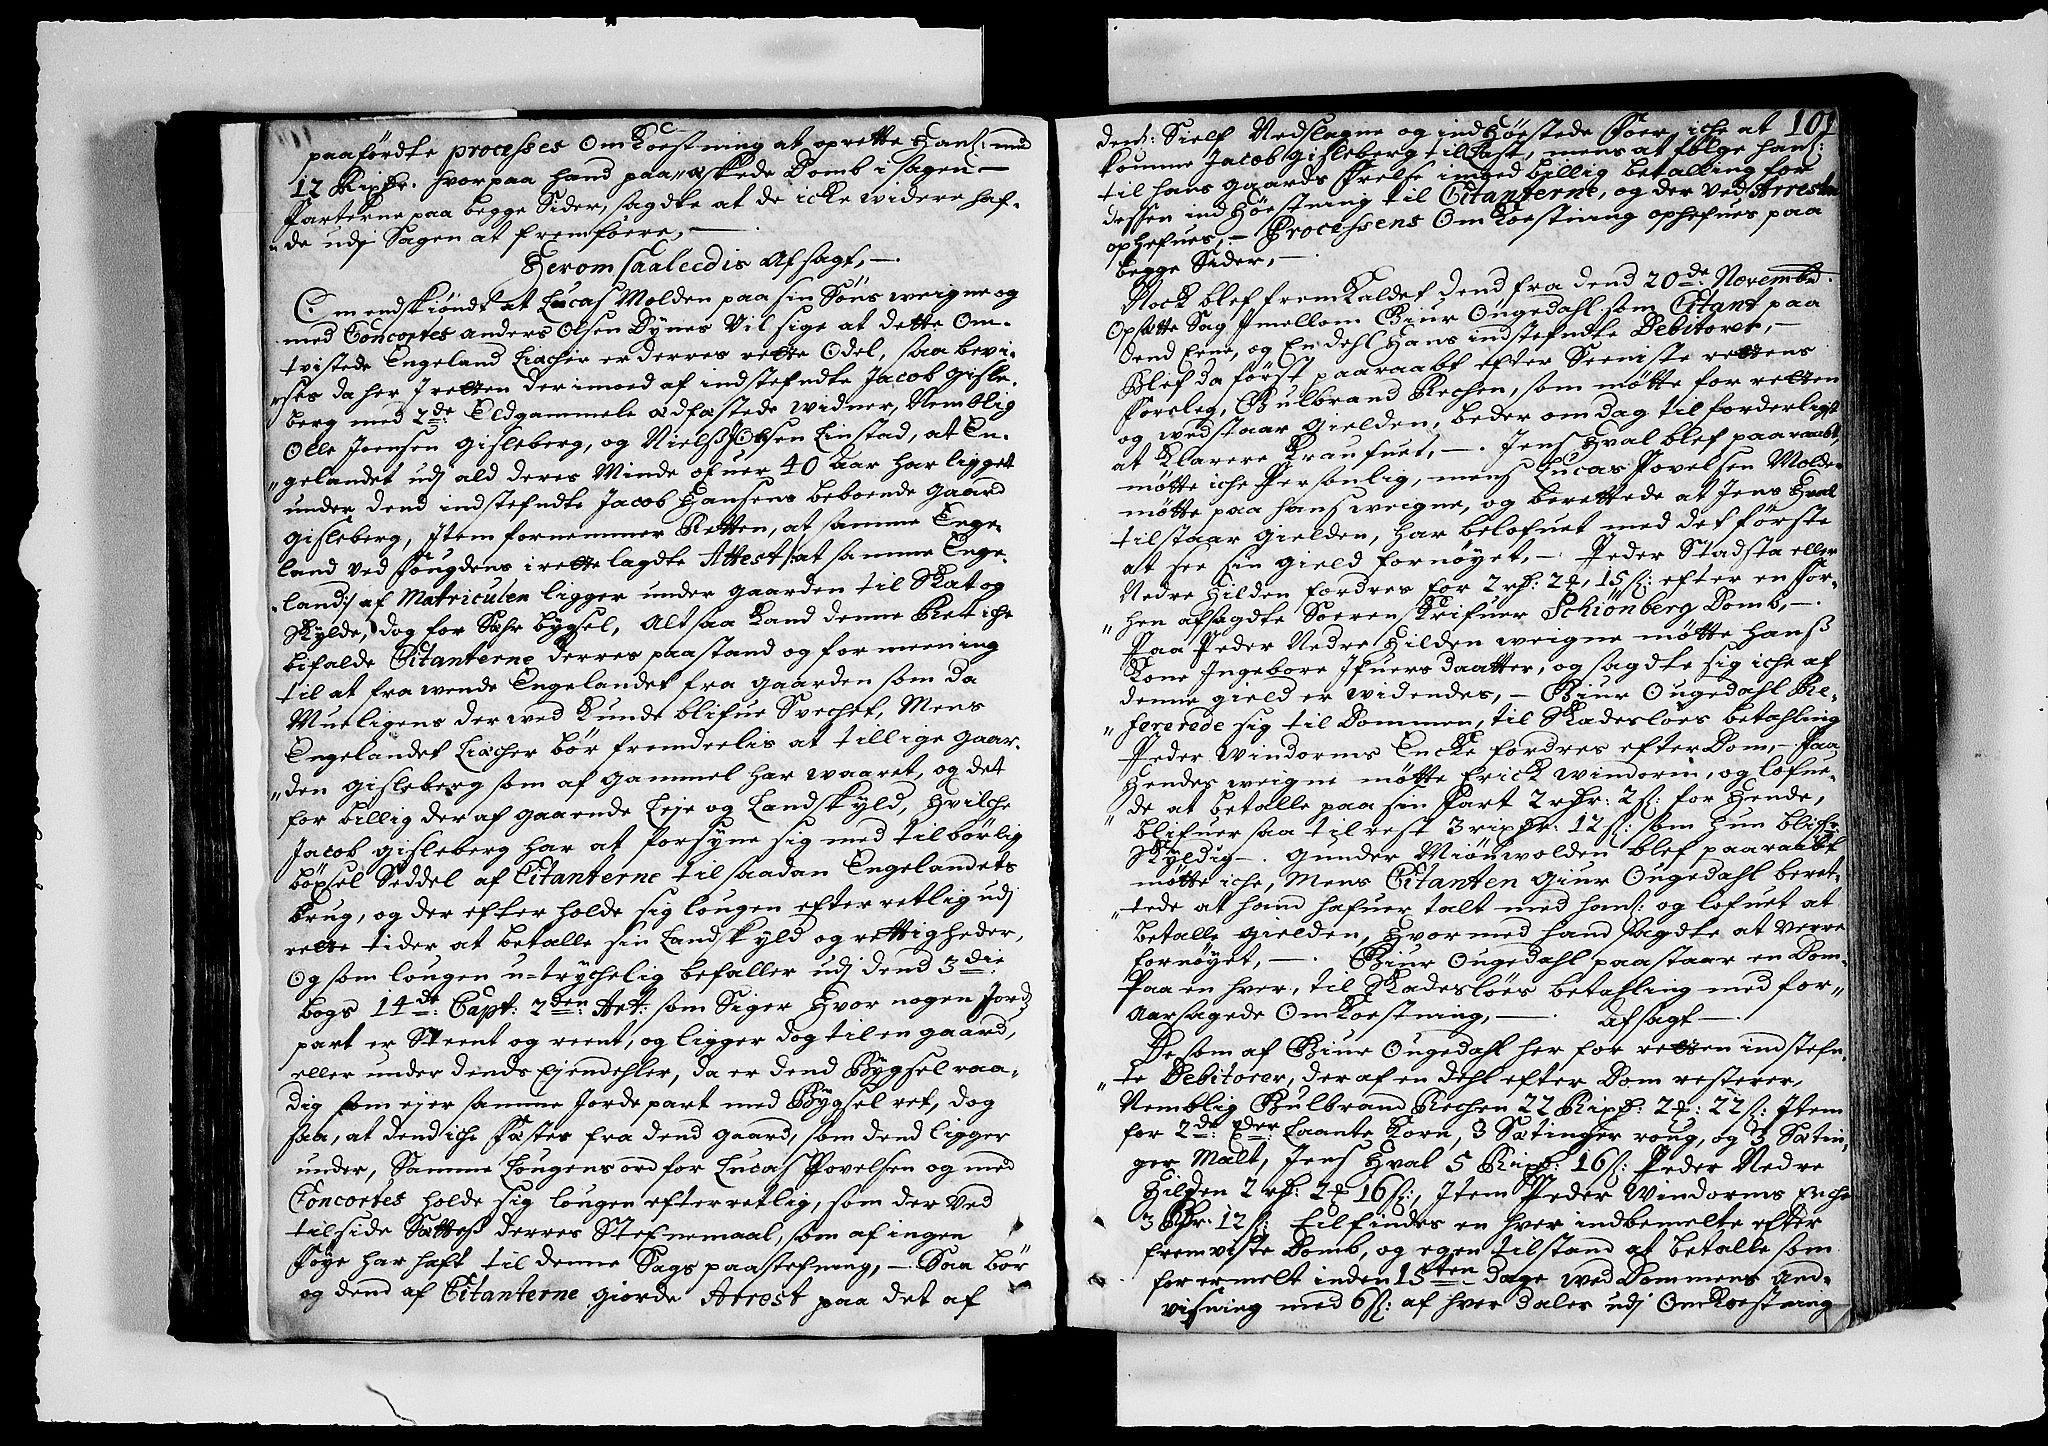 paaførdte processes Omkoestning at oprette Hans: med
12 Rixdr. hvorpaa hand paa-æskede Domb i sagen —
Parterne paa begge Sider, sagdte at de icke widere haf-
de udj Sagen at fremføere, —
Herom saaleedis Afsagt, —
Omendskiøndt at Lucas Molden paa sin Søns weigne og
med Concortes anders Olsen Dynes Vil sige at dette Om-
tvistede Engeland Liacher er derres rette Odel, saa bevi-
ses da her J retten derimoed af indstefndte Jacob Gisle-
berg med 2de Eldgammele ædfæstede widner, Nemblig
Olle Joensen Gisleberg, og Nielss Olsen Linstad, at En-
gelandet udj ald deres Minde ofuer 40 aar har ligget
under dend indstefndte Jacob Hansens beboende gaard
Gisleberg, Jtem fornemmer Retten, at samme Enge-
land ved fougdens i rette lagdte Attest /: at samme Enge-
land :/ af Matriculen ligger under gaarden til Skat og
Skylde, dog for Sæhr bygsel, Altsaa Kand denne Ret iche
bifalde Citanterne derres paastand og formeening
til at fra wende Engelandet fra gaarden som da
Mueligens derwed Kunde blifue Svechet, Mens
Engelandet Liacher bør fremdeelis at tillige gaar-
den Gisleberg som af gammel har waaret, og det
for billig deraf gaaende Leje og Landskyld, Hvilche
Jacob Gisleberg har at forsyne sig med tilbørlig
böxsel Seddel af Citanterne til saadan Engelandets
brug, og der efter holde sig lougen efterretlig udj
rette tider at betalle sin Landskyld og rettigheder,
Og som lougen u-trychelig befaller udj dend 3die
bogs 14de Capt: 2den Art: som Siger Hvor nogen Jord
part er Steent og reent, og ligger dog til en gaard,
eller under dends Ejendehler, da er dend Bygsel raa-
dig som ejer samme Jorde part med Bygsel ret, dog
saa, at dend iche Fæstes fra dend gaard, som dend ligger
under, Samme Lougens ord for Lucas Povelsen og med
Concortes holde sig lougen efterretlig, som der ved
tilside Sættes derres Stefnemaal, som af ingen
Føye har haft til denne Sags paastefning, — Saa bør
og dend af Citanterne giorde Arrest paa det af
101
dend: Sielf Nedslagne og indhøestede Foer, iche at
komme Jacob Gisleberg til Last, mens at følge hans:
til hans gaards frelse imod billig betalling for
dessen indhøestning til Citanterne, og der ved Arresten
ophefues, — Processens Omkoestning ophefues paa
begge Sider, —
Nock blef fremkaldet dend fra dend 20de Novembr:
Opsatte Sag Jmellom Giur Ougedahl som Citant paa
dend Eene, og En dehl Hans indstefndte Debitorer, —
Blef da først paaraabt efter Seeniste rettens
Foreleg, Gulbrand Rechen, som møtte for retten
og wedstaar gielden, beder om dag til forderligst
at Klarere Kraufuet, —. Jens Hval blef paaraabt,
møtte iche Personlig, mens Lucas Povelsen Molden
møtte paa hans weigne, og berettede at Jens Hval
tilstaar gielden, har belofuet med det første
at see sin gield fornøyet, — Peder Stadsta eller
Nedre Hilden fordres for 2 rd: 2 ort, 15 s: efter en for-
hen afsagdte Soeren Skrifuer Schiønberg Domb, —.
Paa Peder Nedre Hilden weigne møtte hans
Kone Ingebore Jfuersdaatter, og sagdte sig iche af
denne gield er widendes, — Giur Ougedahl Re-
fererede sig til Dommen, til Skadesløes betahling
Peder Windorms Encke fordres efter Dom, — Paa
Hendes weigne møtte Erick Windorm, og lofue-
de at betalle paa sin Part 2 rdr: 2 s: for Hende,
blifuer saa til rest 3 rixdr: 12 s: som hun blifr
Skyldig —. Gunder Miönwolden blef paaraabt
møtte iche, Mens Citanten Giur Ougedahl beret-
tede at hand hafuer talt med hans: og lofuet at
betalle gielden, Hvormed hand sagdte at verre
fornøyet, —. Giur Ougedahl paastaar en Dom
Paa en hver, til Skadesløes betahling med for-
aarsagede Omkoestning, —. Afsagt —.
De som af Giur Ougedahl her for retten indstefn-
te Debitorer, deraf en dehl efter Dom resterer,
Nemblig Gulbrand Rechen 22 Rixd: 2 ort: 22 s: Jtem
for 2de Laante Korn, 3 Sætinger roug, og 3 Sætin-
ger Malt, Jens Hval 5 Rixd: 16 s: Peder Nedre
Hilden 2 rd: 2 ort 16 s:, Jtem Peder Windorms Enche
3 Rdr. 12 s: tilfindes en hver indbemelte efter
fremviste Domb, og egen tilstand at betalle som
forermelt inden 15ten dage wed Dommens And-
visning med 6 s: af hver daler udj Omkoestning